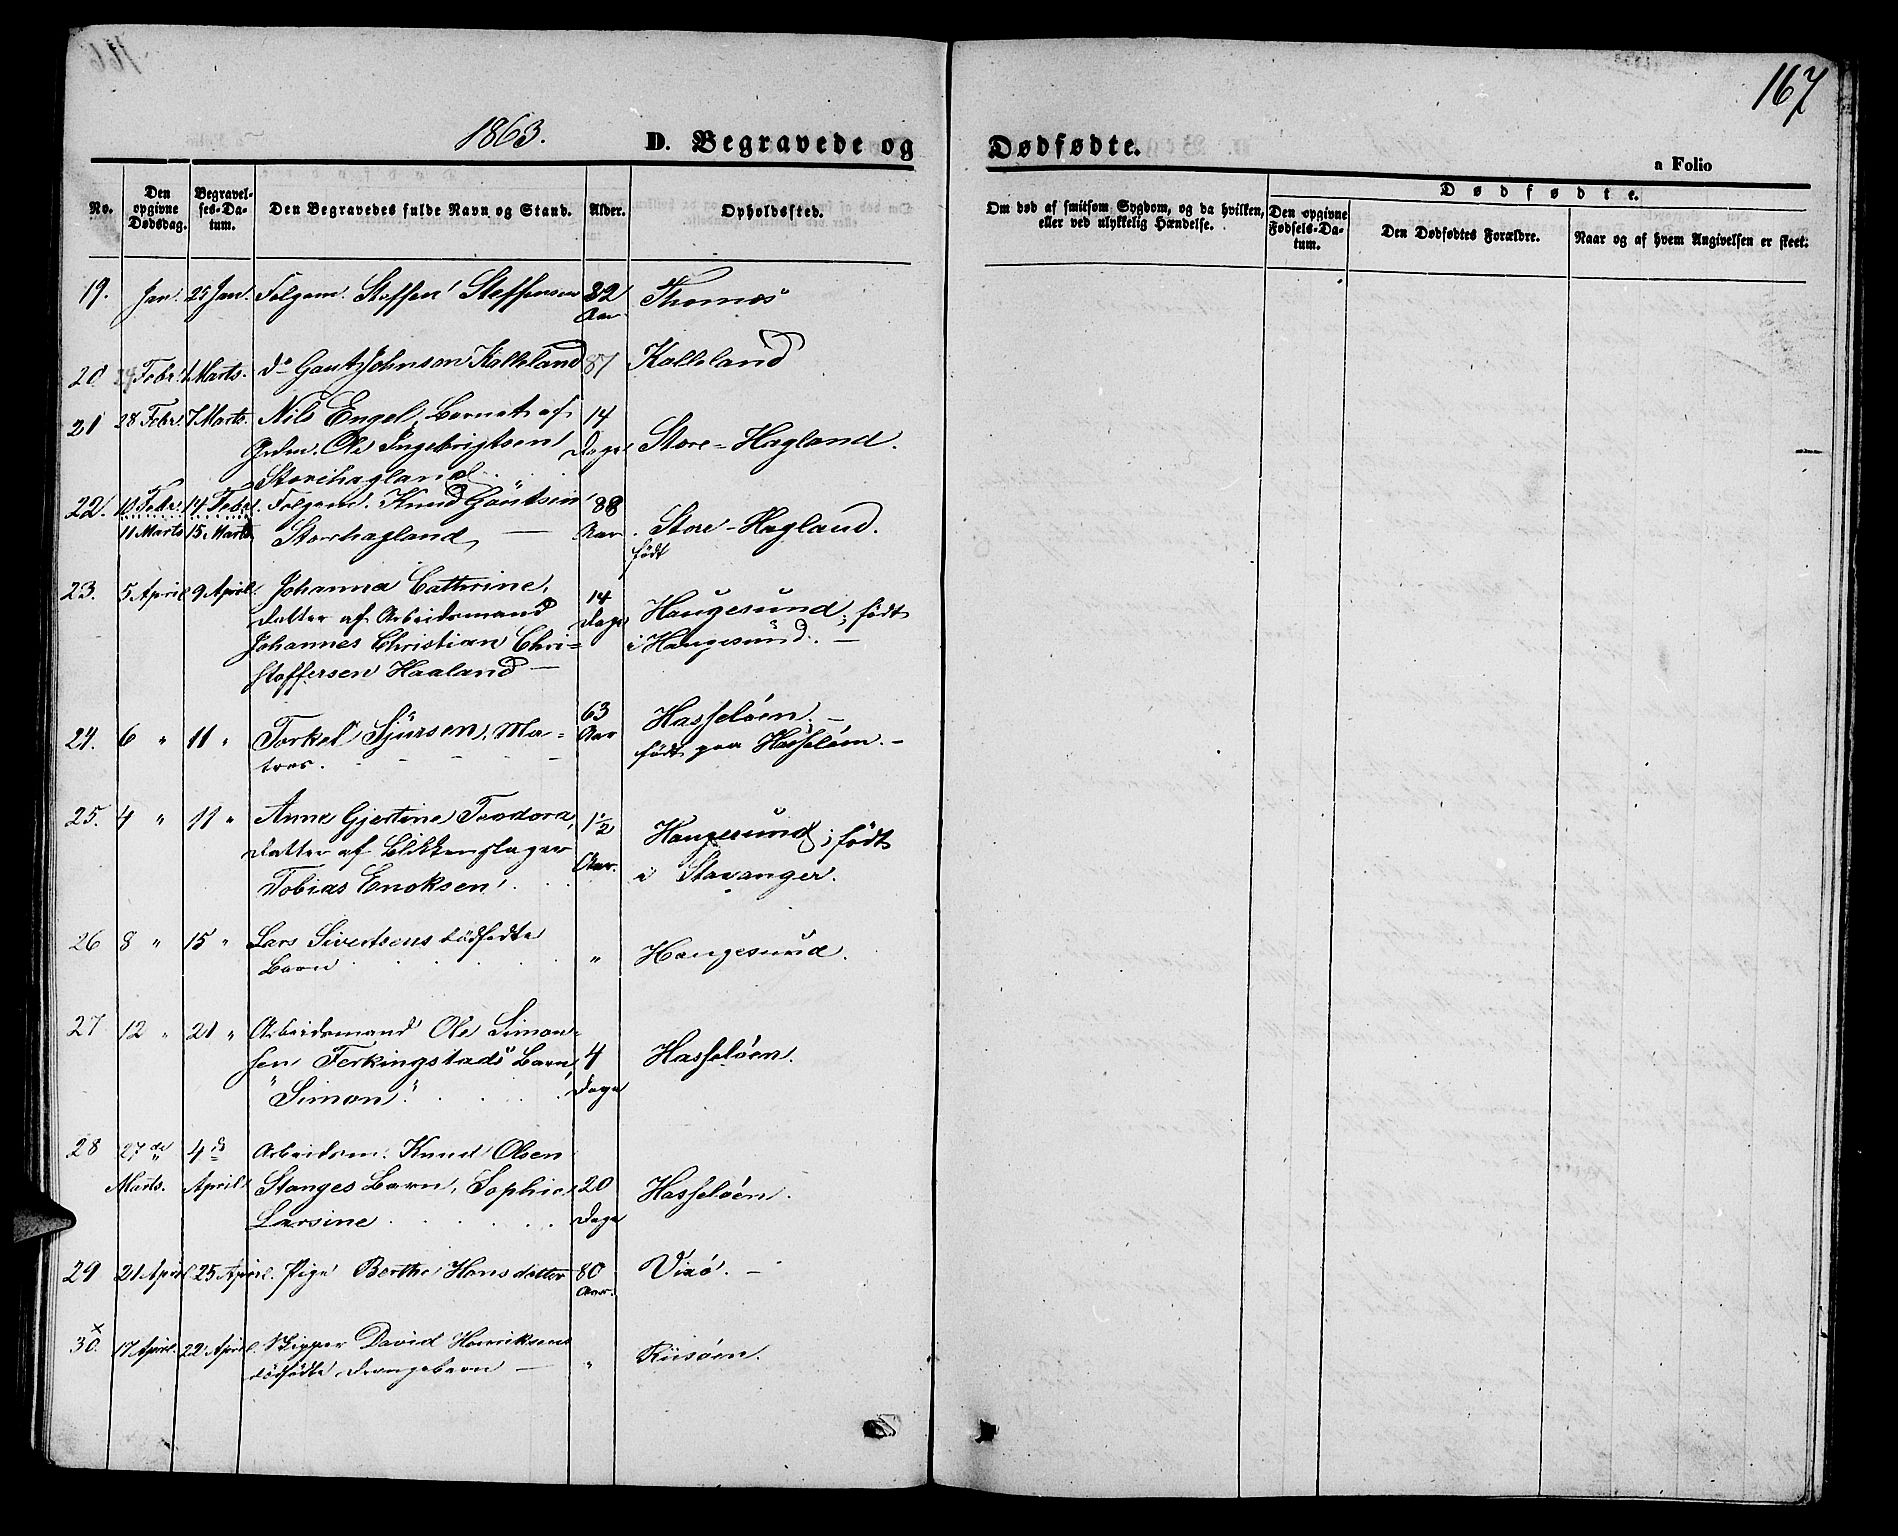 167
1863.
D. Begravede og Dødfødte.
a Folio
No.
Den opgivne Dødsdag.
Begravelses-Datum.
Den Begravedes fulde Navn og Stand.
Alder.
Opholdssted.
Om død af smitsom Sygdom, og da hvilken, eller ved ulykkelig Hændelse.
Dødfødte.
Den opgivne Fødsels-Datum.
Den Dødfødtes Forældre.
Naar og af hvem Angivelsen er skeet.
19. Jan. 25 Jan. Folgem. Steffen Steffensen 82 Thomæs
Aar
20. 24 Febr. 1 Marts. do Gaut Johnson Kalleland 87 Kalleland
21 28 Febr. 7 Marts. Nils Engel, Barnet af 14
Grdm. Ole Ingebrigtsen Dage Store-Hagland.
Storehagland
22. 10 Febr. 14 Febr. Folgem. Knud Gautsen 88
11 Marts 15 Marts Storhagland, — Aar. Store-Hagland.
født
23. 5 April 9 April. Johanna Cathrine,
Datter af Arbeidsmand 14 Haugesund; født
Johannes Christian Chri- Dage i Haugesund. —
stoffersen Haaland —
24. 6 " 11 " Torkel Sjursen, Ma- 63 Hasseløen, —
tros. Aar født paa Hasseløen. —
25. 4 " 11 " Anne Gjertine Teodora, 1½ Haugesund; født
Datter af Blikkenslager
Tobias Enoksen. Aar. i Stavanger.
26 8 " 15 " Lars Sivertsens dødfødte
Barn " Haugesund.
27 12 " 21 " Arbeidsmand Ole Simon-
sen Ferkingstads Barn, 4 Hasseløen.
"Simon". Dage
28 27de 4de Arbeidsm. Knud Olsen
Marts. April Stanges Barn, Sophie 20 Hasseløen.
Larsine Dage
29 21 April 25 April. Pige Berthe Hansdatter 80 Vixø. —
Aar.
x
30. 17 April. 22 April. Skipper David Henriksens
dødfødte Drengebarn — " Risøen.